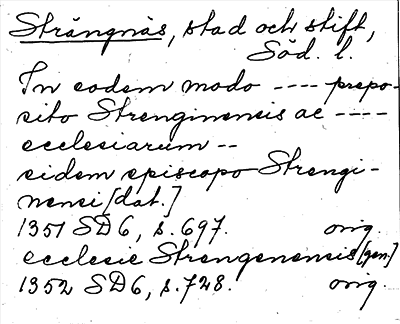 Strängnäs, stad och stift,
Söd. l.
In eodem modo ---- prepo-
sito Strenginensis ac ----
ecclesiarum --
eidem episcopo Strengi-
nensi [dat.]
1351 SD6, s. 697. orig.
ecclesie Strengenensis [gen.]
1352 SD6, s. 728. orig.